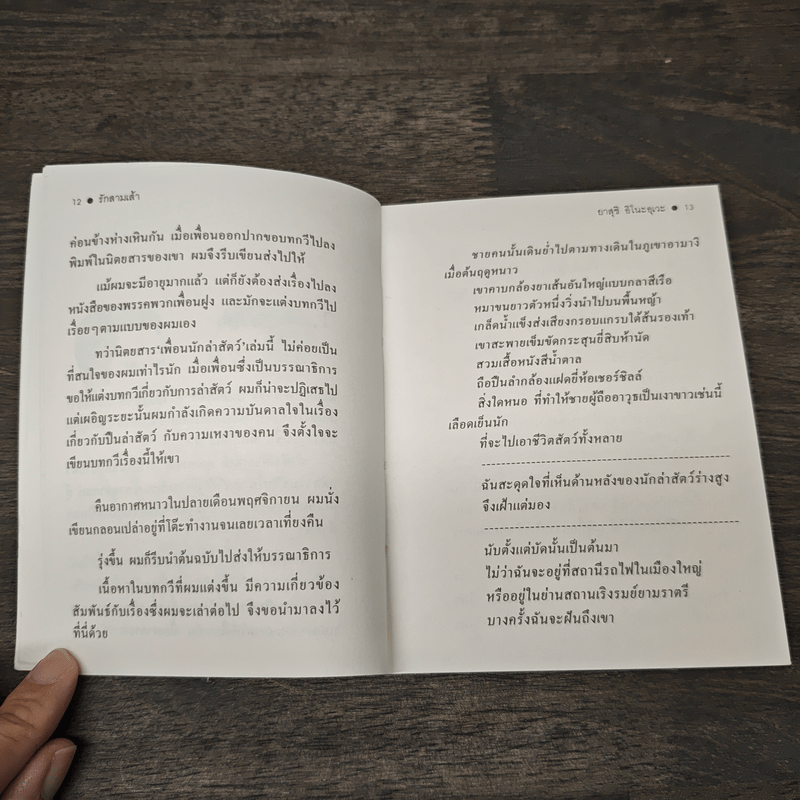 12 ● รักสามเส้า
ค่อนข้างห่างเหินกัน เมื่อเพื่อนออกปากขอบทกวีไปลง
พิมพ์ในนิตยสารของเขา ผมจึงรีบเขียนส่งไปให้
แม้ผมจะมีอายุมากแล้ว แต่ก็ยังต้องส่งเรื่องไปลง
หนังสือของพรรคพวกเพื่อนฝูง และมักจะแต่งบทกวีไป
เรื่อยๆตามแบบของผมเอง
ทว่านิตยสาร‘เพื่อนนักล่าสัตว์’เล่มนี้ ไม่ค่อยเป็น
ที่สนใจของผมเท่าไรนัก เมื่อเพื่อนซึ่งเป็นบรรณาธิการ
ขอให้แต่งบทกวีเกี่ยวกับการล่าสัตว์ ผมก็น่าจะปฏิเสธไป
แต่เผอิญระยะนั้นผมกำลังเกิดความบันดาลใจในเรื่อง
เกี่ยวกับปืนล่าสัตว์ กับความเหงาของคน จึงตั้งใจจะ
เขียนบทกวีเรื่องนี้ให้เขา
คืนอากาศหนาวในปลายเดือนพฤศจิกายน ผมนั่ง
เขียนกลอนเปล่าอยู่ที่โต๊ะทำงานจนเลยเวลาเที่ยงคืน
รุ่งขึ้น ผมก็รีบนำต้นฉบับไปส่งให้บรรณาธิการ
เนื้อหาในบทกวีที่ผมแต่งขึ้น มีความเกี่ยวข้อง
สัมพันธ์กับเรื่องซึ่งผมจะเล่าต่อไป จึงขอนำมาลงไว้
ที่นี่ด้วย
ยาสุชิ อิโนะอุเวะ ● 13
ชายคนนั้นเดินย่ำไปตามทางเดินในภูเขาอามางิ
เมื่อต้นฤดูหนาว
เขาคาบกล้องยาเส้นอันใหญ่แบบกลาสีเรือ
หมาขนยาวตัวหนึ่งวิ่งนำไปบนพื้นหญ้า
เกล็ดน้ำแข็งส่งเสียงกรอบแกรบใต้ส้นรองเท้า
เขาสะพายเข็มขัดกระสุนยี่สิบห้านัด
สวมเสื้อหนังสีน้ำตาล
ถือปืนลำกล้องแฝดยี่ห้อเชอร์ชิลล์
สิ่งใดหนอ ที่ทำให้ชายผู้ถืออาวุธเป็นเงาขาวเช่นนี้
เลือดเย็นนัก
ที่จะไปเอาชีวิตสัตว์ทั้งหลาย
ฉันสะดุดใจที่เห็นด้านหลังของนักล่าสัตว์ร่างสูง
จึงเฝ้าแต่มอง
นับตั้งแต่บัดนั้นเป็นต้นมา
ไม่ว่าฉันจะอยู่ที่สถานีรถไฟในเมืองใหญ่
หรืออยู่ในย่านสถานเริงรมย์ยามราตรี
บางครั้งฉันจะฝันถึงเขา